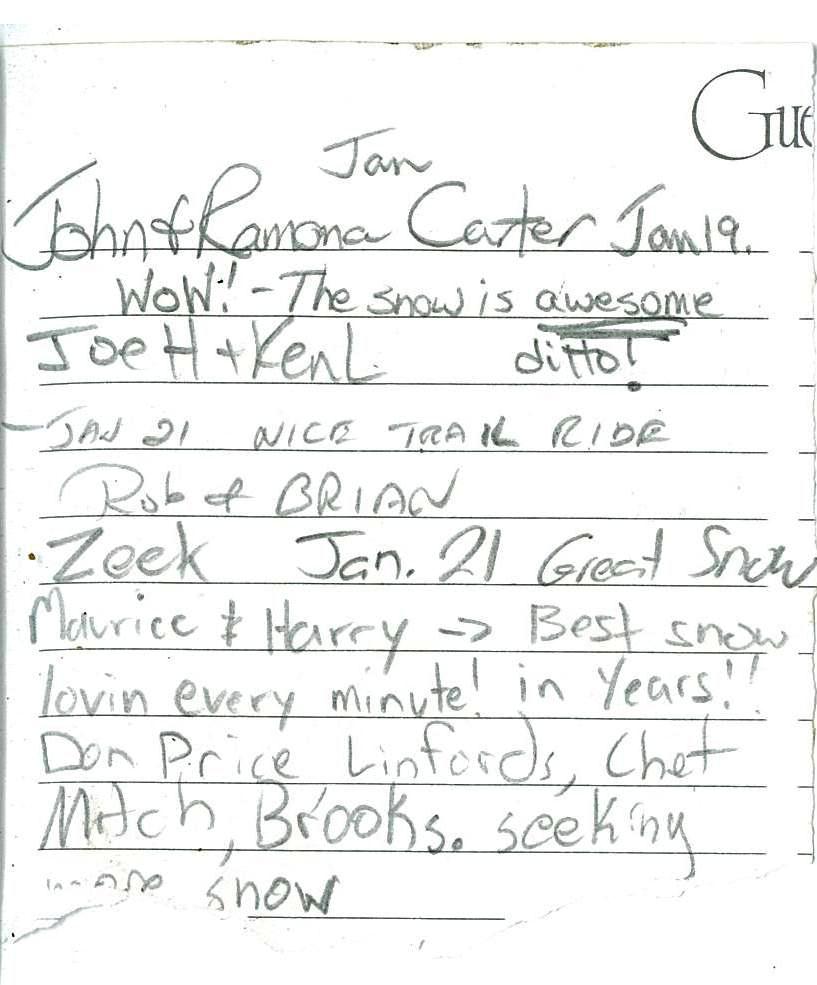 Gue
Jan
John & Ramona Carter Jan 19.
WOW! - The snow is awesome
Joe H + Ken L ditto!
- JAN 21 NICE TRAIL RIDE
Rob & BRIAN
Zeek Jan. 21 Great Snow
Maurice & Harry -> Best snow
lovin every minute! in Years!!
Don Price Linfords, Chet
Mitch, Brooks. seeking
more snow